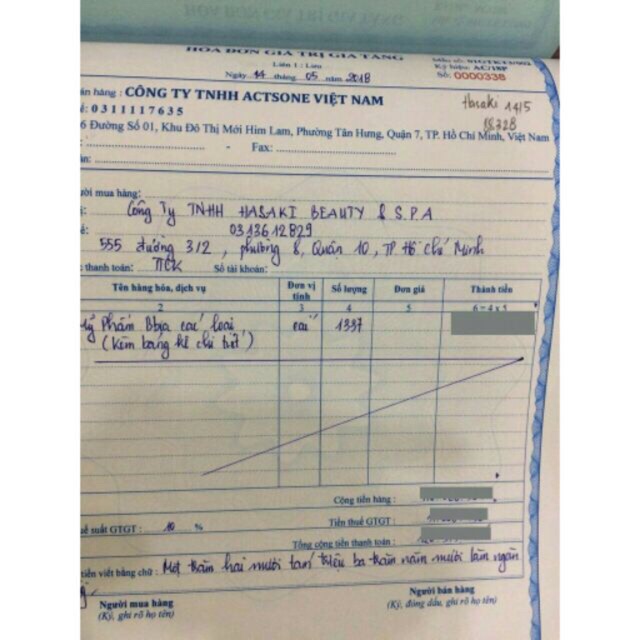 HÓA ĐƠN GIÁ TRỊ GIA TĂNG
Liên 1 : Lưu
Ngày 14 tháng 05 năm 2018
Ký hiệu: AC/18P
Số: 0000338
hàng : CÔNG TY TNHH ACTSONE VIỆT NAM
: 0311117635
6 Đường Số 01, Khu Đô Thị Mới Him Lam, Phường Tân Hưng, Quận 7, TP. Hồ Chí Minh, Việt Nam
Hasaki 14/5
- Fax:
mua hàng:
Công Ty TNHH HASAKI BEAUTY & S.P.A
0313612829
555 đường 3/2 , phường 8, Quận 10, TP Hồ Chí Minh
thanh toán: TTCK Số tài khoản:
Tên hàng hóa, dịch vụ Đơn vị tính Số lượng Đơn giá Thành tiền
2 3 4 5 6=4x5
Phẩm Bbia các loại cái 1337
(Kèm bảng kê chi tiết)
Cộng tiền hàng :
suất GTGT : 10 % Tiền thuế GTGT :
Tổng cộng tiền thanh toán :
tiền viết bằng chữ : Một trăm hai mươi tám triệu ba trăm năm mươi lăm ngàn
Người mua hàng Người bán hàng
(Ký, ghi rõ họ tên) (Ký, đóng dấu, ghi rõ họ tên)